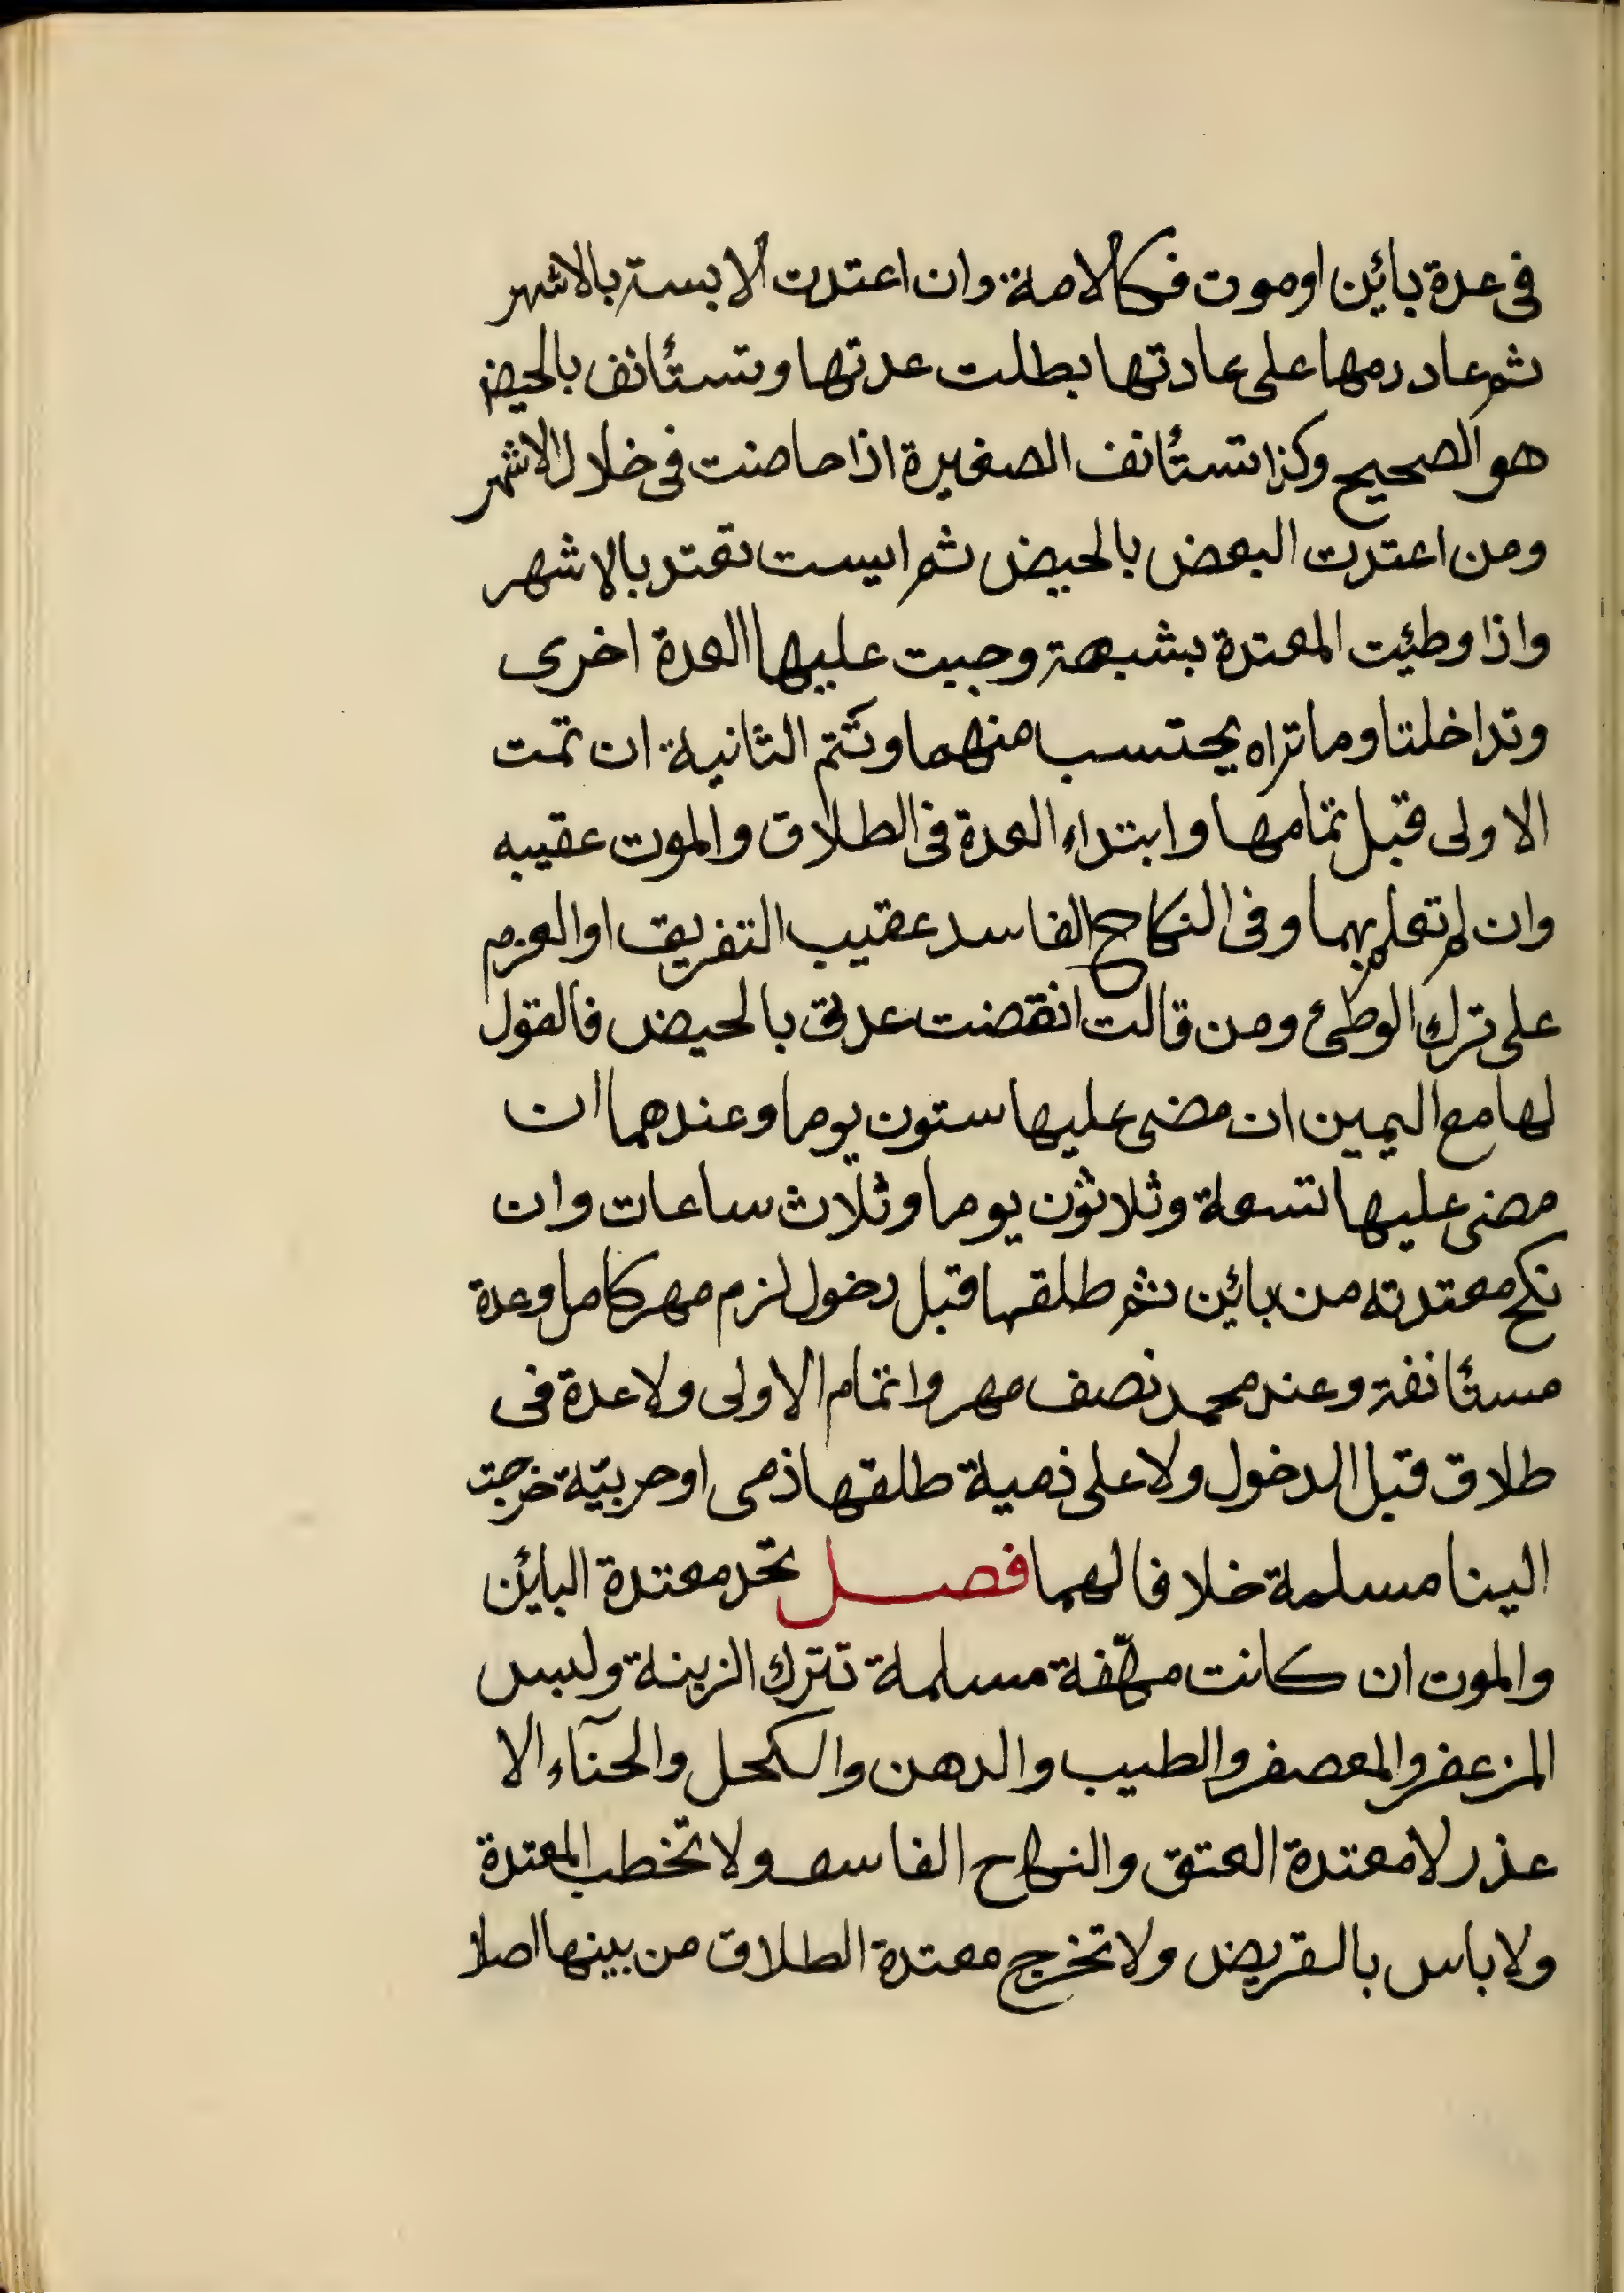 فى عدة بائن او موت فكالامة وان اعتدت الابسة بالاشهر
ثم عاد دمها على عادتها بطلت عدتها وتستأنف بالحيض
هو الصحيح وكذا تستأنف الصغيرة اذا حاضت فى خلال الاشهر
ومن اعتدت البعض بالحيض ثم ايست تعتد بالاشهر
واذا وطئت المعتدة بشبهة وجبت عليها العدة اخرى
وتداخلتا وما تراه يحتسب منهما وتتم الثانية ان تمت
الاولى قبل تمامها وابتداء العدة فى الطلاق والموت عقيبه
وان لم تعلم بهما وفى النكاح الفاسد عقيب التفريق او العزم
على ترك الوطئ ومن قالت انقضت عدتى بالحيض فالقول
لها مع اليمين ان مضى عليها ستون يوما وعندهما ان
مضى عليها تسعة وثلاثون يوما وثلاث ساعات وان
نكح معتدته من بائن ثم طلقها قبل دخول لزم مهر كامل وعدة
مستأنفة وعند محمد نصف مهر واتمام الاولى ولا عدة فى
طلاق قبل الدخول ولا على ذمية طلقها ذمى او حربيّة خرجت
الينا مسلمة خلافا لهما فصل تحد معتدة البائن
والموت ان كانت مكلّفة مسلمة تترك الزينة ولبس
المزعفر والمعصفر والطيب والدهن والكحل والحنآء الا
عذر لا معتدة العتق والنكاح الفاسد ولا تخطب المعتدة
ولا باس بالتقريض ولا تخرج معتدة الطلاق من بيتها اصلا